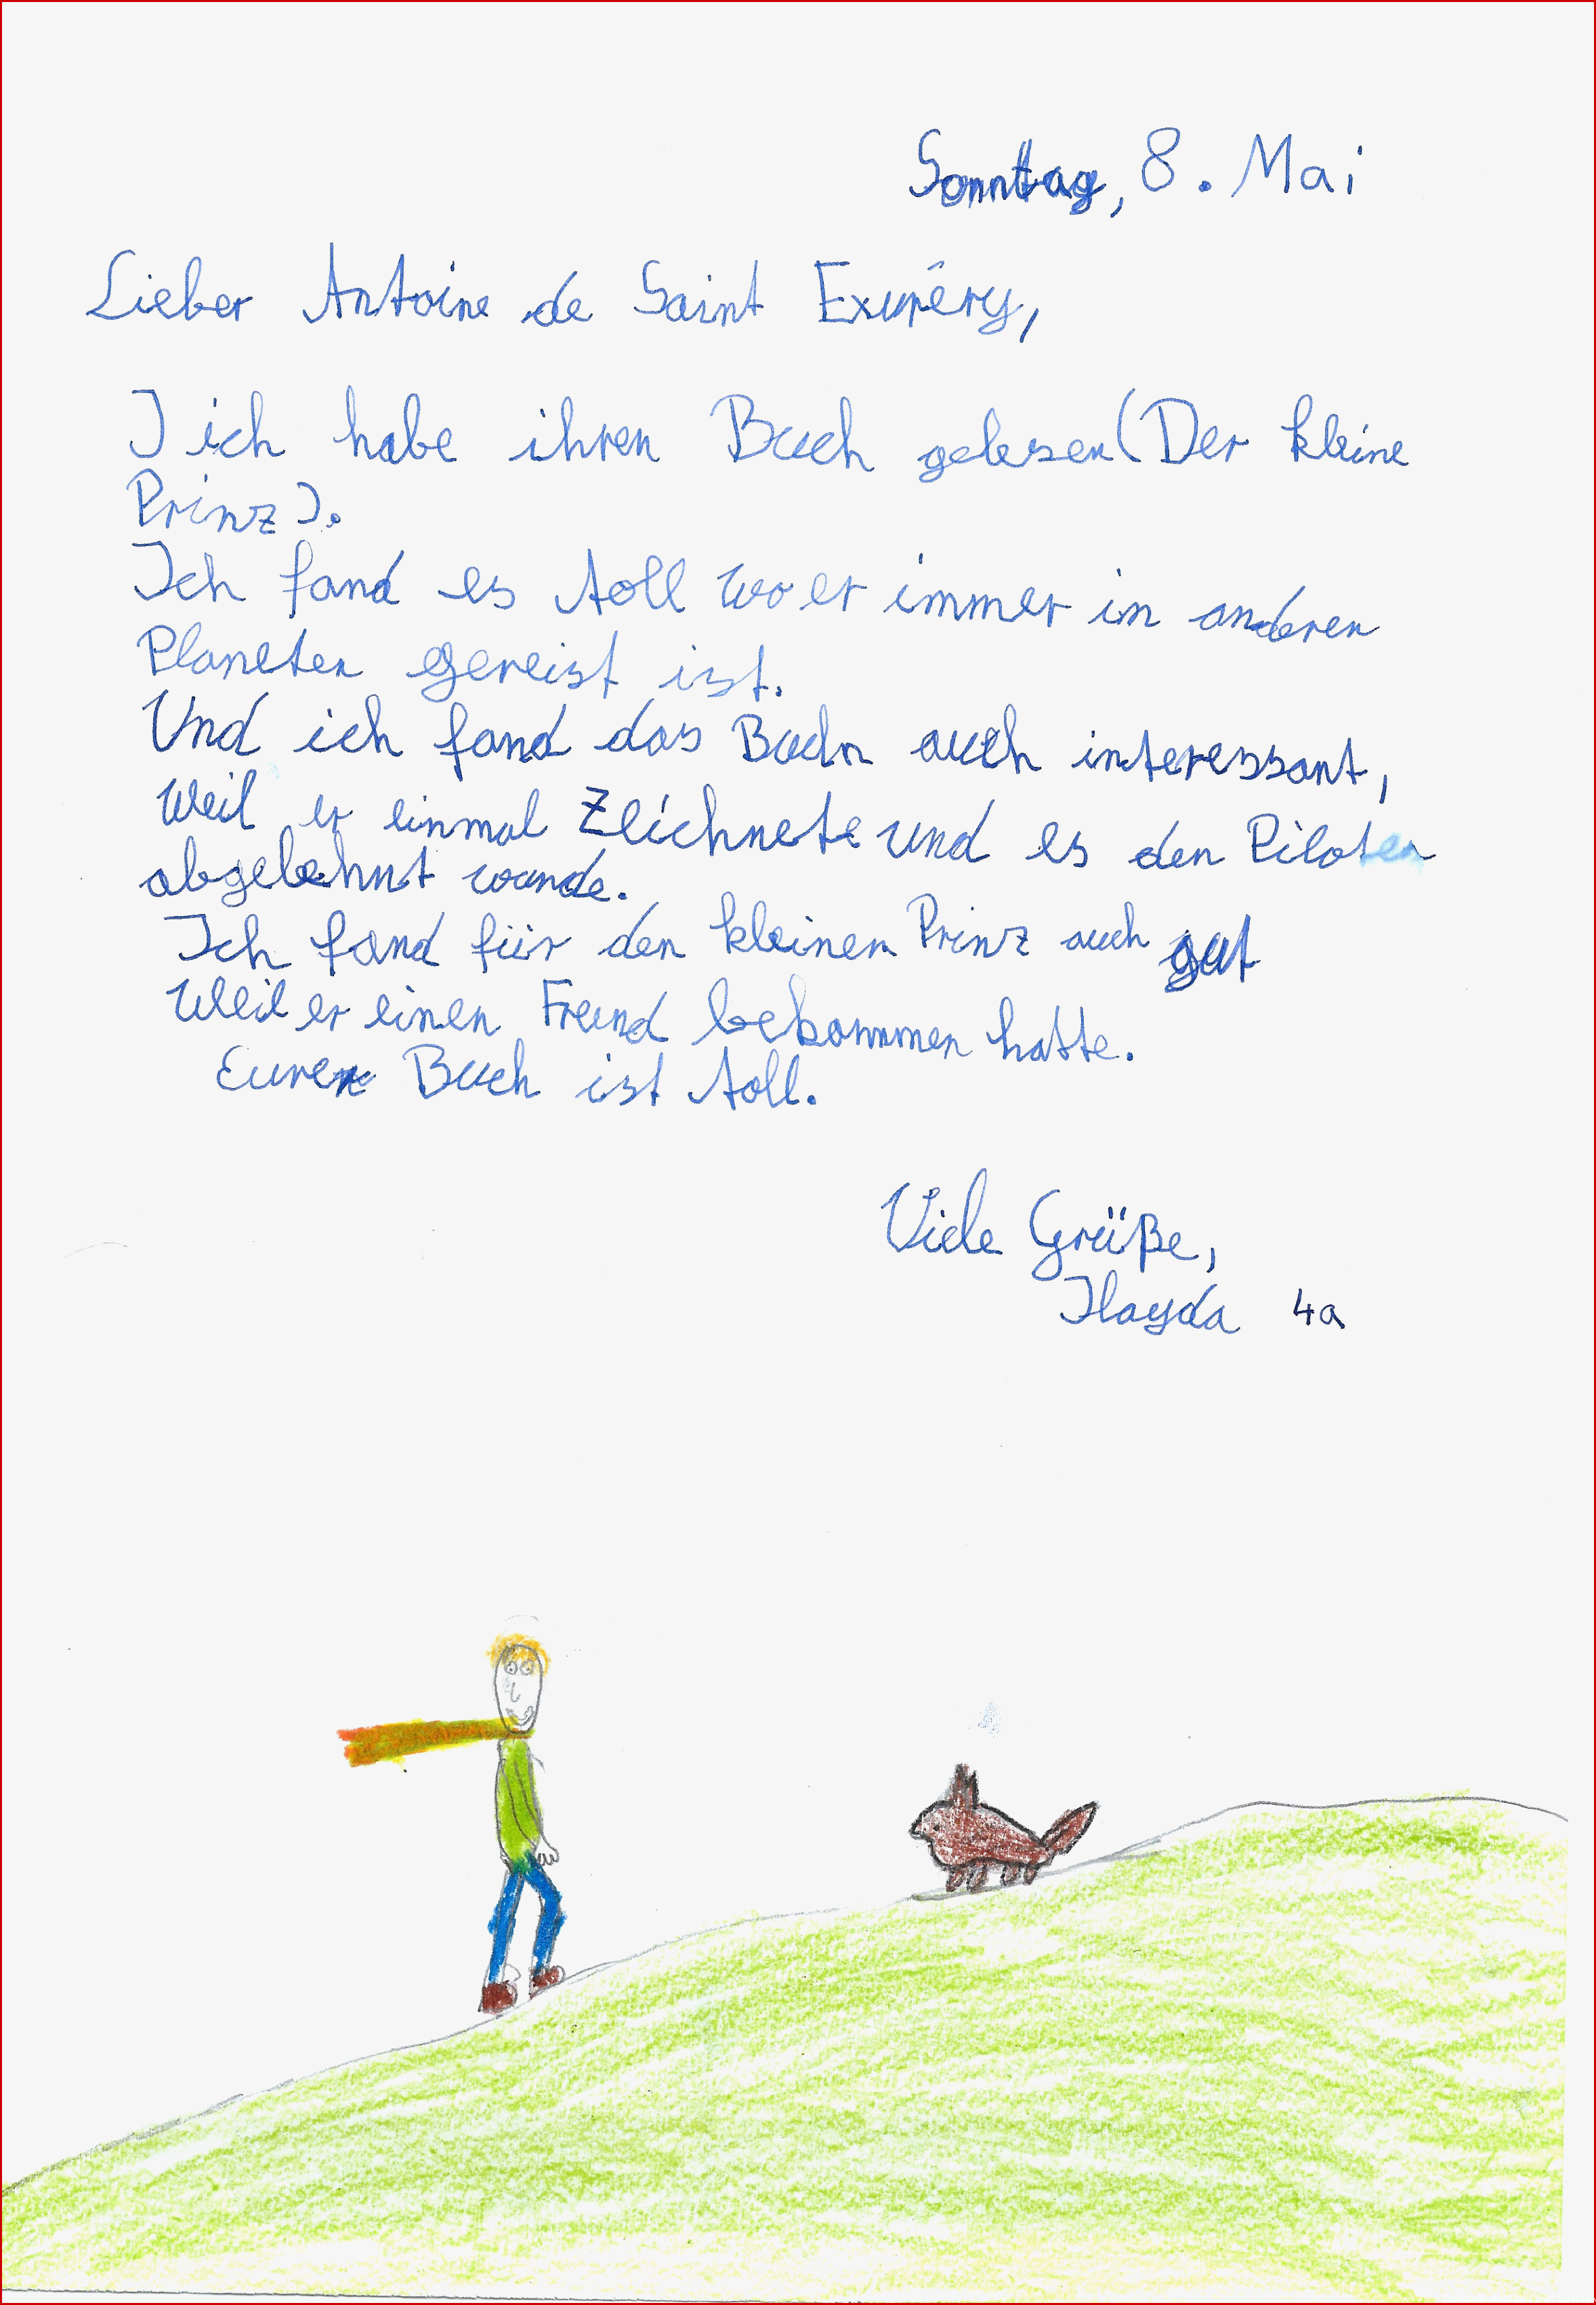 Sonntag, 8. Mai
Lieber Antoine de Saint Exupéry,
I ich habe ihren Buch gelesen (Der kleine
Prinz).
Ich fand es toll wo er immer in anderen
Planeten gereist ist.
Und ich fand das Buch auch interessant,
Weil er einmal Zeichnete und es den Piloten
abgelehnt wurde.
Ich fand für den kleinen Prinz auch gut
Weil er einen Freund bekommen hatte.
Euren Buch ist toll.
Viele Grüße,
Ilayda 4a